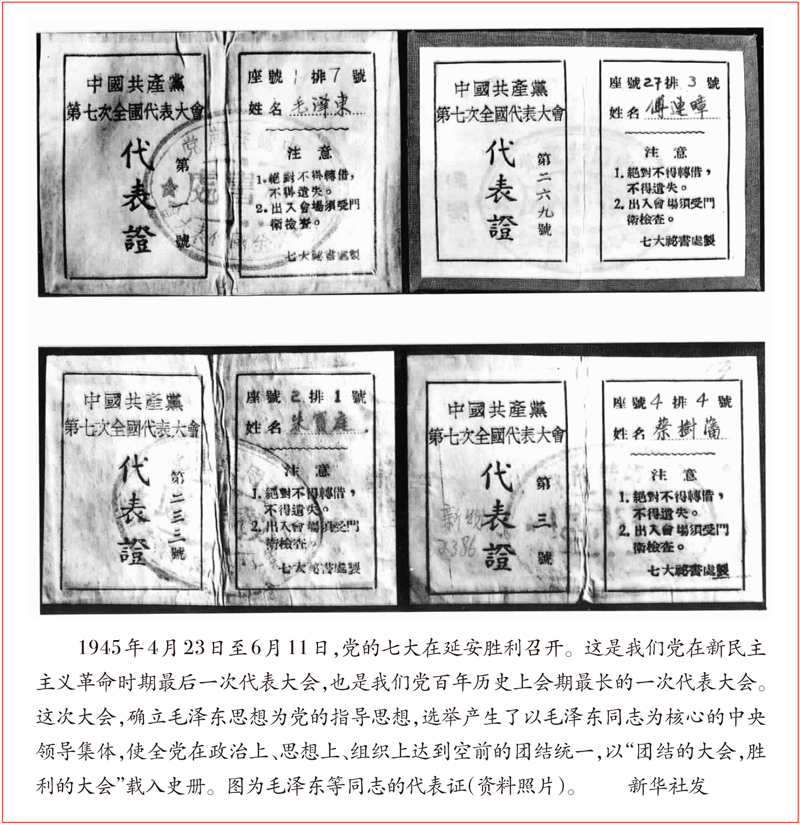 中國共產黨
第七次全國代表大會
代表證
第一號
座號1排7號
姓名毛澤東
注意
1.絕對不得轉借，
不得遺失。
2.出入會場須受門
衛檢查。
七大祕書處製
中國共產黨
第七次全國代表大會
代表證
第二六九號
座號27排3號
姓名傅連暲
注意
1.絕對不得轉借，
不得遺失。
2.出入會場須受門
衛檢查。
七大祕書處製
中國共產黨
第七次全國代表大會
代表證
第二三三號
座號2排1號
姓名朱寶庭
注意
1.絕對不得轉借，
不得遺失。
2.出入會場須受門
衛檢查。
七大祕書處製
中國共產黨
第七次全國代表大會
代表證
第三號
3386
座號4排4號
姓名蔡樹藩
注意
1.絕對不得轉借，
不得遺失。
2.出入會場須受門
衛檢查。
七大祕書處製
1945年4月23日至6月11日,党的七大在延安胜利召开。这是我们党在新民主
主义革命时期最后一次代表大会,也是我们党百年历史上会期最长的一次代表大会。
这次大会,确立毛泽东思想为党的指导思想,选举产生了以毛泽东同志为核心的中央
领导集体,使全党在政治上、思想上、组织上达到空前的团结统一,以“团结的大会,胜
利的大会”载入史册。图为毛泽东等同志的代表证(资料照片)。 新华社发